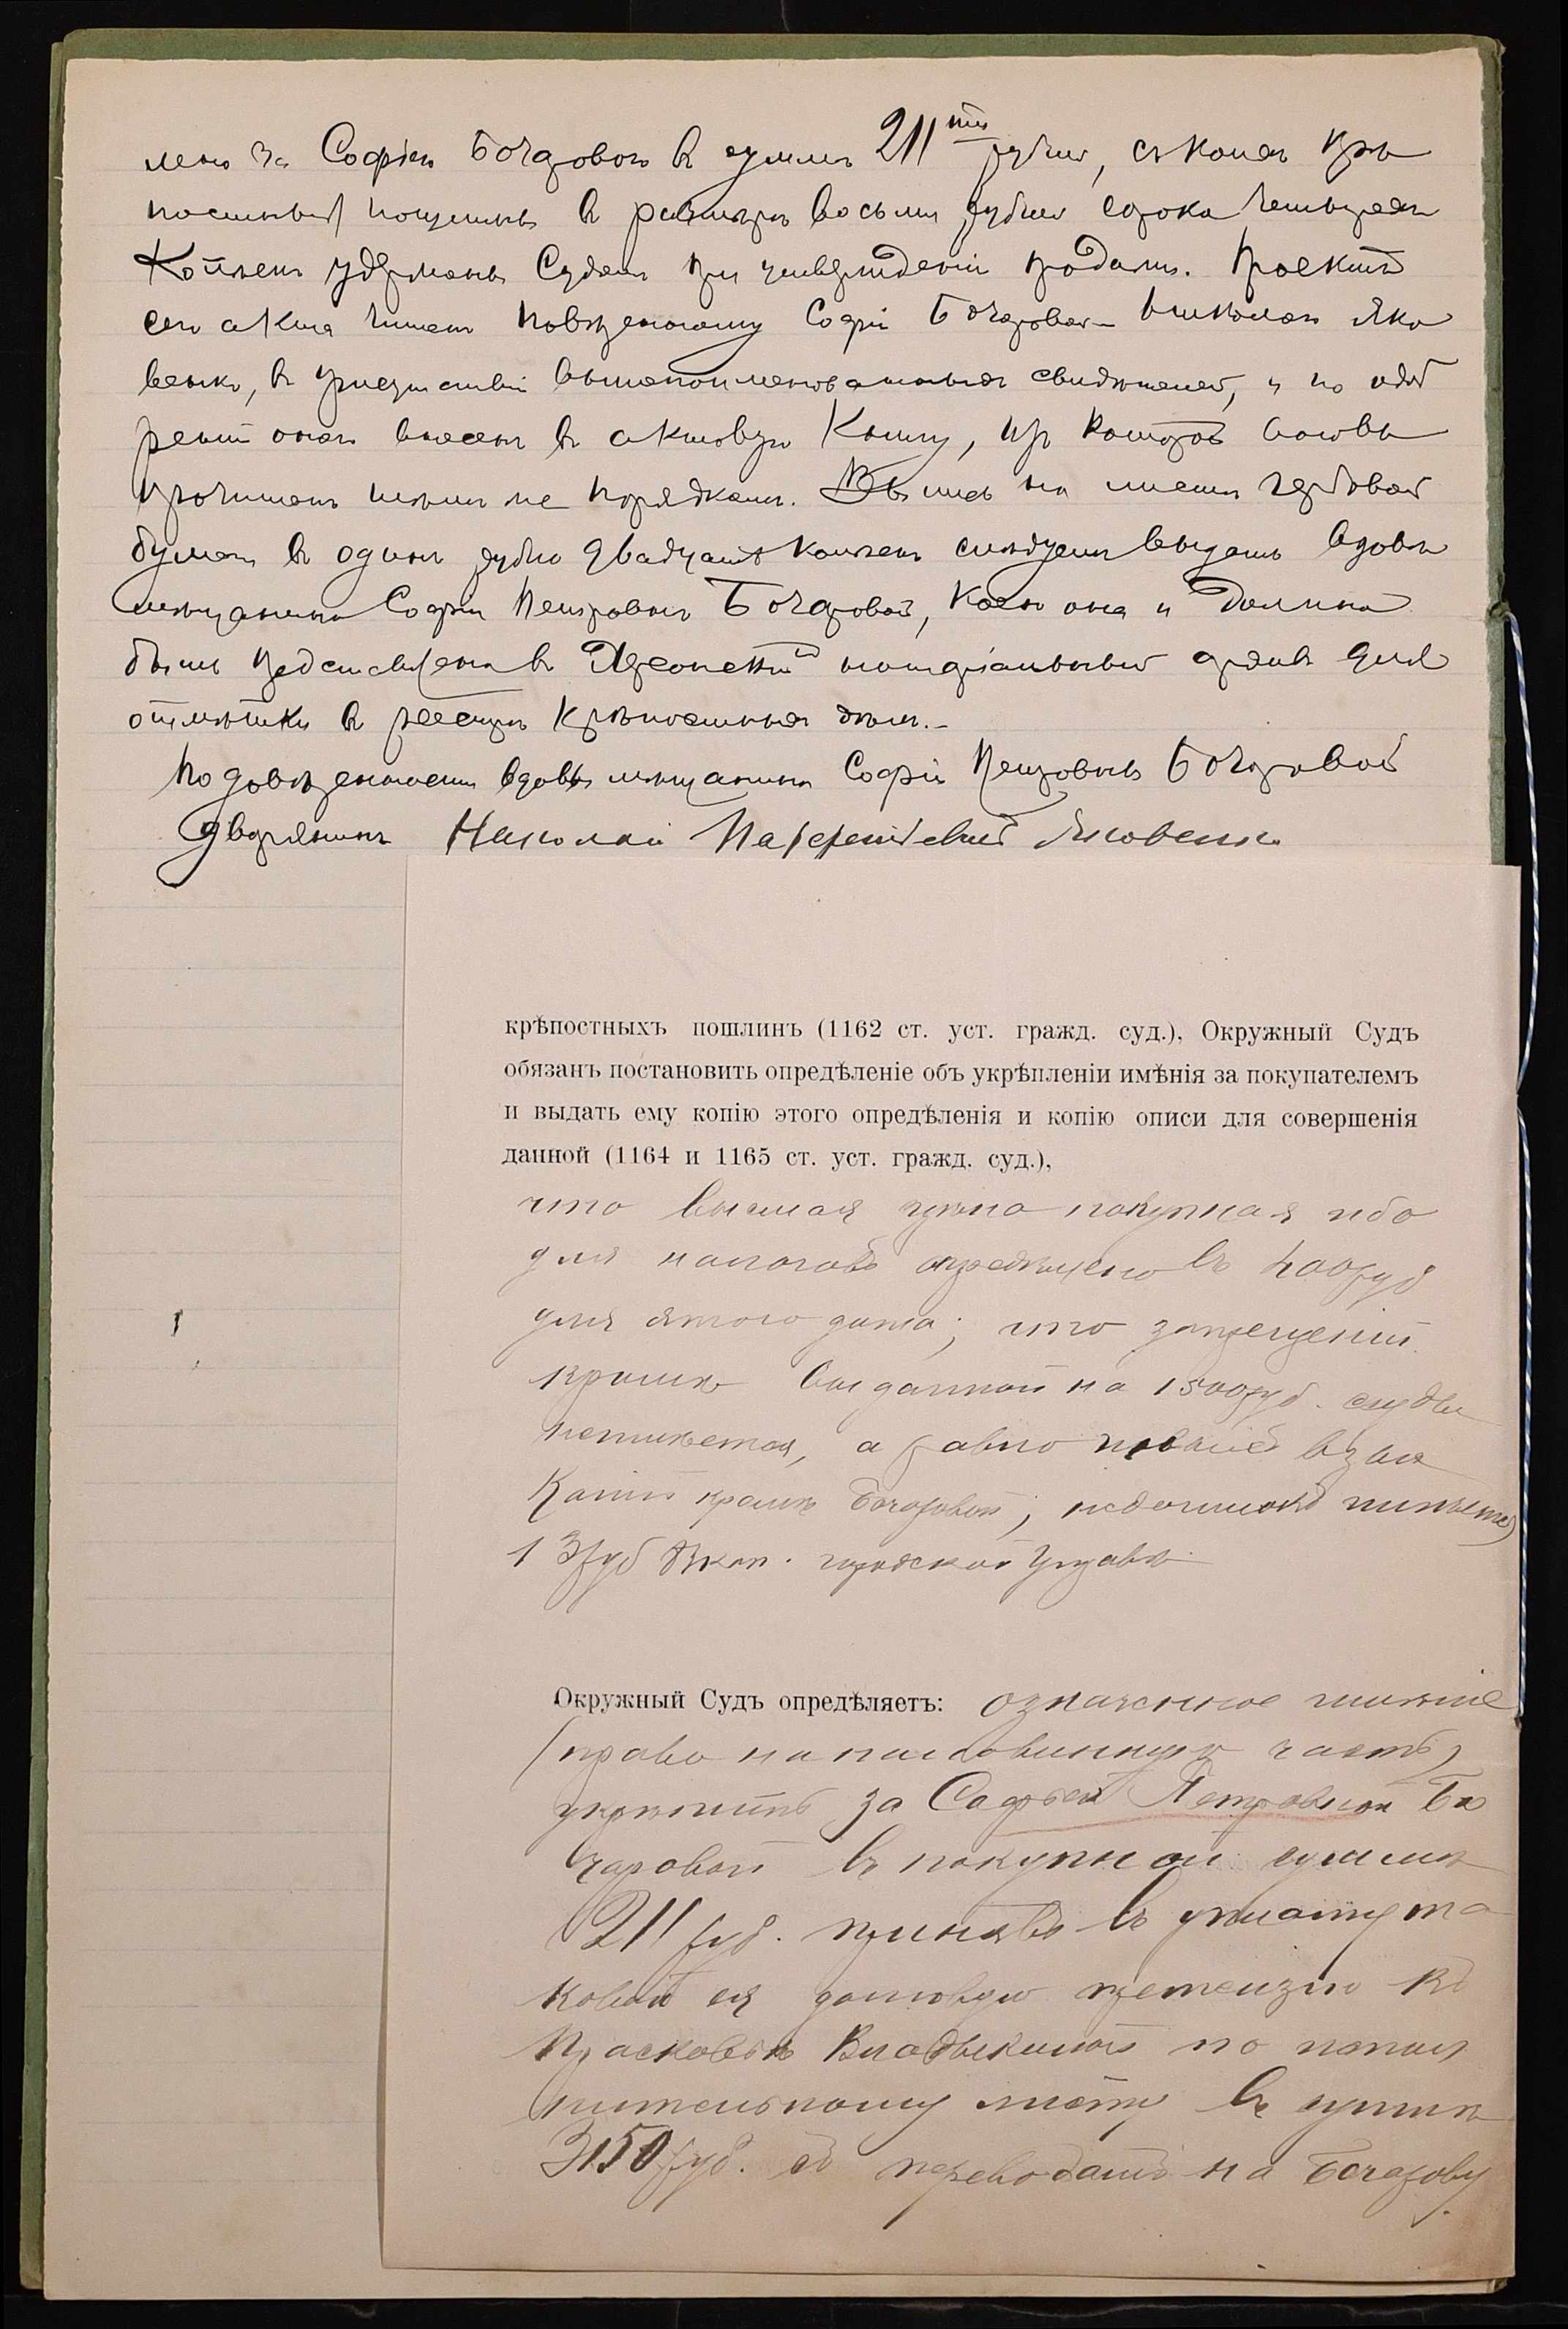 лено за Софіею Бочаровою въ суммѣ 211ти рублей, съ коихъ крѣ
постныхъ пошлинъ въ размѣрѣ восьми рублей сорока четырехъ
копѣекъ удержаны Судомъ при утвержденіи продажи. Проектъ
сего акта читанъ повѣренному Софіи Бочаровой Николаю Яко
венко, въ присутствіи вышепоименованныхъ свидѣтелей, и по одоб
реніи онаго внесенъ въ актовую книгу, изъ которой вновь
прочитанъ тѣмъ же порядкомъ. Выпись на листѣ гербовой
бумаги въ одинъ рубль двадцать копѣекъ слѣдуетъ выдать вдовѣ
мѣщанина Софіи Петровнѣ Бочаровой, коею она и должна
быть представлена въ Херсонскій нотаріальный архивъ для
отмѣтки въ реестрѣ крѣпостныхъ дѣлъ.-
По довѣренности вдовы мѣщанина Софіи Петровны Бочаровой
дворянинъ Николай Яковенко
крѣпостныхъ пошлинъ (1162 ст. уст. гражд. суд.), Окружный Судъ
обязанъ постановить опредѣленіе объ укрѣпленіи имѣнія за покупателемъ
и выдать ему копію этого опредѣленія и копію описи для совершенія
данной (1164 и 1165 ст. уст. гражд. суд.),
что высшая цѣна покупная ибо
для налоговъ опредѣлено въ 400 руб
для этого дома; что запрещеній
кромѣ выданной на 1500 руб. ссуды
неимѣется, а равно новыхъ взыс
каній кромѣ Бочаровой; недоимокъ числится
13 руб коп. городской Управѣ
Окружный Судъ опредѣляетъ: означенное имѣніе
(право на половинную часть)
укрѣпить за Софьей Петровной Бо
чаровой въ покупной суммѣ
211 руб. принявъ въ уплату та
ковой ея долговую претензію къ
Прасковьѣ Владыкиной по испол
нительному листу въ суммѣ
3150 руб. съ переводомъ на Бочарову